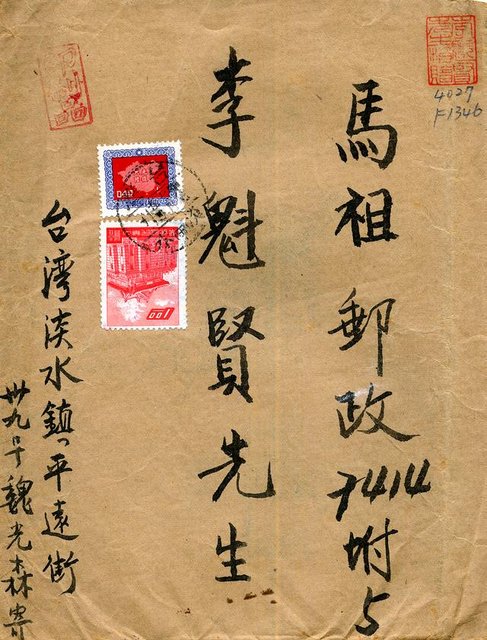 馬祖郵政7414附5
李魁賢先生
台湾淡水鎮平遠街
卅九号魏光森寄
4027
F1346
0.40
1.00